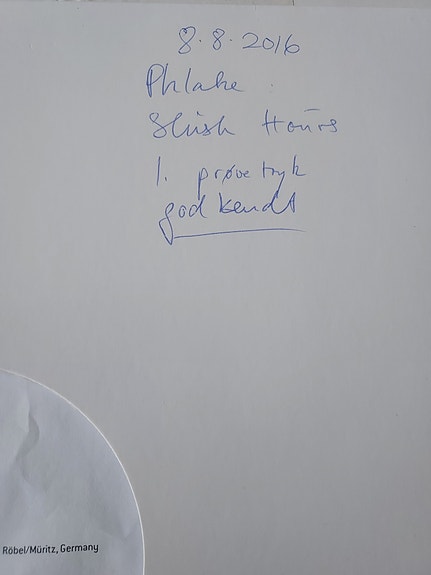 8.8.2016
Phlake :
Slush Hours
1. prøvetryk
godkendt
Röbel/Müritz, Germany